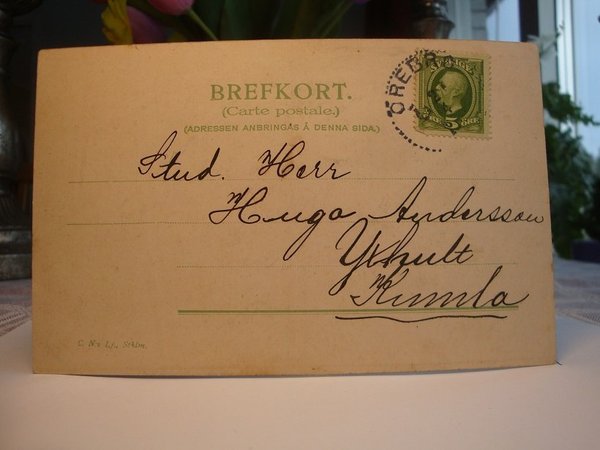 BREFKORT.
(Carte postale.)
(ADRESSEN ANBRINGAS Å DENNA SIDA.)
ÖREBRO
5
ÖRE
Stud. Herr
Hugo Andersson
Yxhult
Kumla
C. N:s Lj., Sthlm.